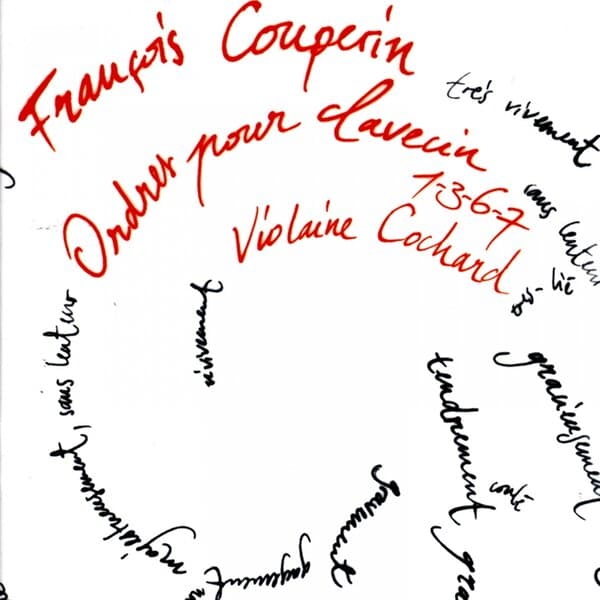 François Couperin
Ordres pour clavecin
1-3-6-7
Violaine Cochard
très vivement
sans lenteur
lié
vivement
majestueusement, sans lenteur
gravement
gayement
tendrement
coulé
gracieusement
gra